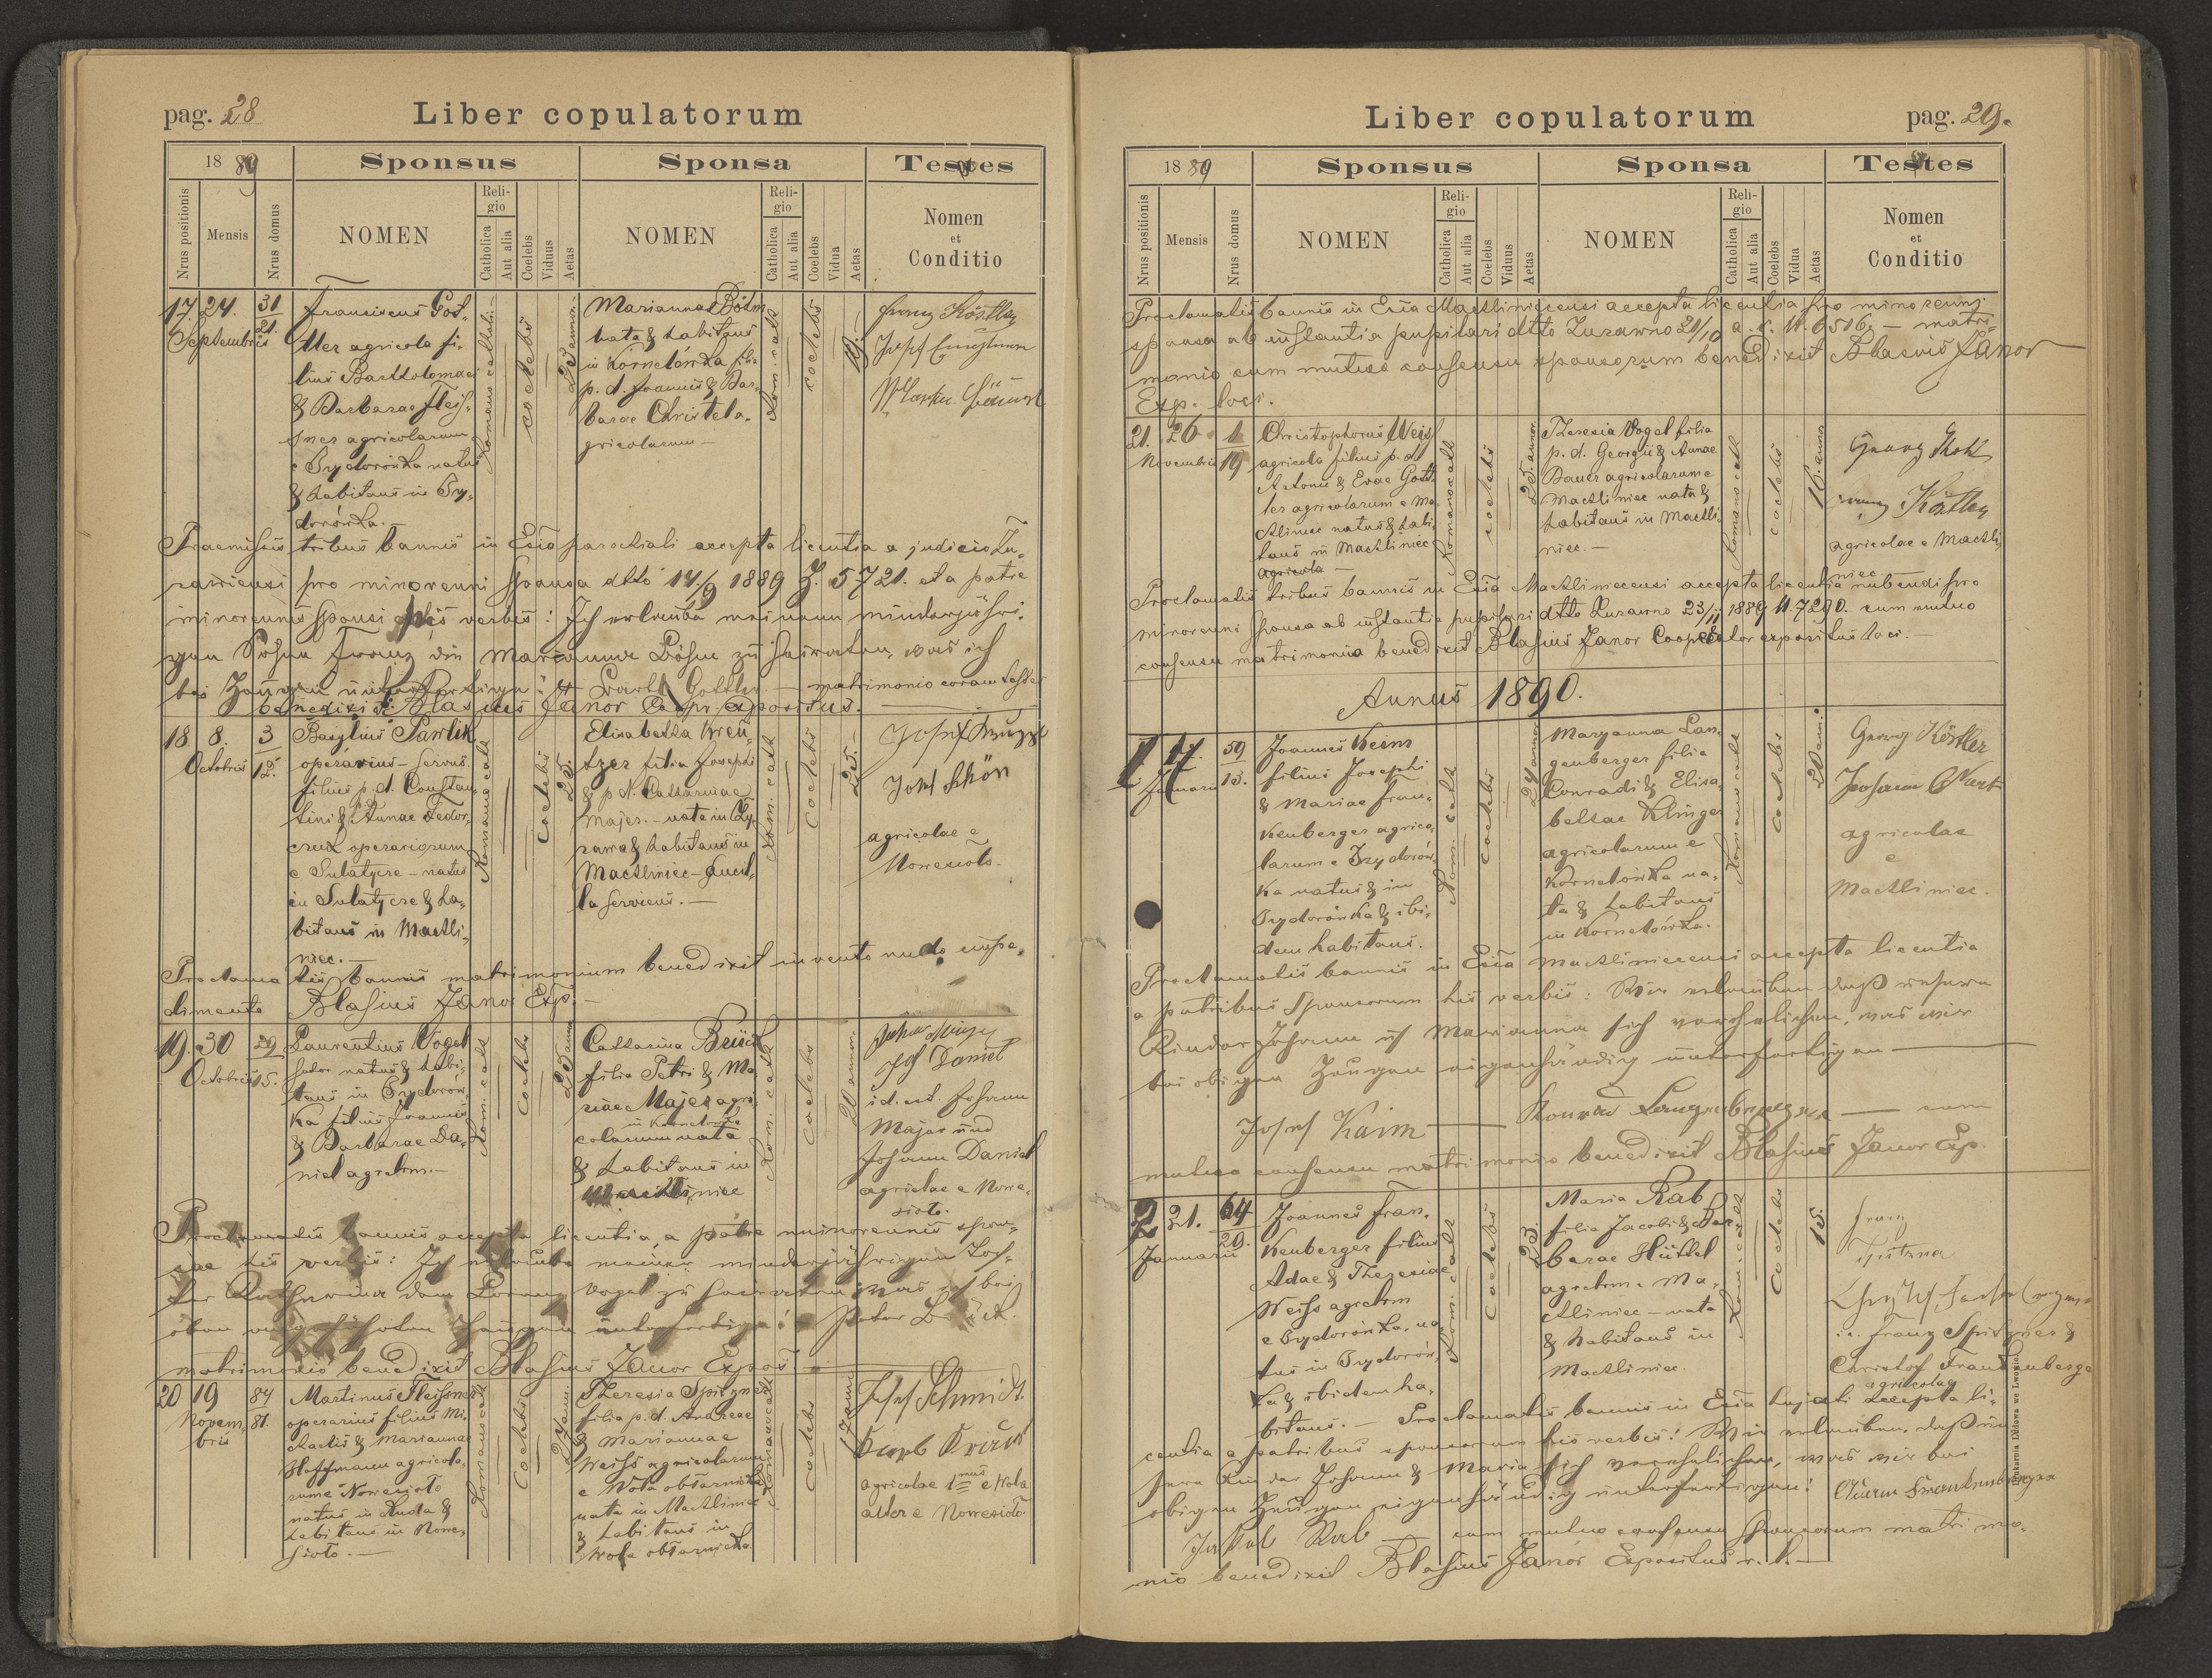 pag. 28
Liber copulatorum
1889
Sponsus
Sponsa
Testes
Nrus positionis
Mensis
Nrus domus
NOMEN
Religio
Catholica
Aut alia
Coelebs
Viduus
Aetas
NOMEN
Religio
Catholica
Aut alia
Coelebs
Vidua
Aetas
Nomen
et
Conditio
17. 24.
Septembris
31
21.
Franciscus Got-
tler agricola fi-
lius Bartholomaei
& Barbarae Fleis-
sner agricolarum
e Izydorówka natus
& habitans in Izy-
dorówka.
coelebs
Marianna Böhm
nata & habitans
in Kornelówka filia
p. d. Joannis & Bar-
barae Christel a-
gricolarum
coelebs
Franz Köstler
Praemissis tribus bannis in Ecia parochiali accepta licentia a judicio Zu-
rawnensi pro minorenni sponsa dtto 14/9 1889 Z. 5721. et a patre
minorennis sponsi his verbis: Ich erlaube meinem minderjähri-
gen Sohne Franz die Marianna Böhm zu heiraten, was ich
bei Zeugen unterfertige: Gottler matrimonio coram testes
benedixit Blasius Janor Coop. expositus.
18 8.
Octobris
3
12.
Basylius Pawlik
operarius - servus
filius p. d. Constan-
tini & Annae Fedor-
czuk operariorum
e Sulatycze - natus
in Sulatycze & ha-
bitans in Machli-
niec.
Romano cath
coelebs
25.
Elisabetha Kreu-
tzer filia Josephi
& p. d. Catharinae
Majer. - nata in Zy-
rawa & habitans in
Machliniec - ancil-
la serviens.
Rom. cath
coelebs
25.
Josef Schön
agricolae e
Nowesioło.
Proclamatis bannis matrimonium benedixit invento nullo impe-
dimento Blasius Janor Exp.
19. 30
Octobris
29
15.
Laurentius Vogel
sutor natus & habi-
tans in Izydorów-
ka filius Joannis
& Barbarae Da-
niel agrclrm.
Rom. cath
coelebs
Catharina Brück
filia Petri & Ma-
riae Majer agri-
in Kornelówka
colarum nata
& habitans in
Machliniec
Rom. cath
coelebs
20 annor.
Daniel
id. est. Johann
Majer und
Johann Daniel
agricolae e Nowe-
sioło.
Proclamatis bannis accepta licentia a patre minorennis spon-
sae his verbis: Ich erlaube meiner minderjährigen Toch-
ter Katharina dem Lorenz Vogel zu heiraten was ich bei
oben Zeugen unterfertige: Peter Brück.
matrimonio benedixit Blasius Janor Expos.
20 19
Novem-
bris
84
81.
Martinus Fleissner
operarius filius Mi-
chaelis & Mariannae
Hoffmann agricola-
rum e Nowesioło
natus in Ruda &
habitans in Nowe-
sioło.
Romano cath
coelebs
Theresia Spitzner
filia p. d. Andreae
& Mariannae
Weiss agricolarum
e Wola obłaznicka
nata in Machliniec
& habitans in
Wola obłaznicka
Romano cath
coelebs
17 annor
Josef Schmidt.
Jacob
agricolae 1mus e Wola
alter e Nowesioło
pag. 29.
Liber copulatorum
1889
Sponsus
Sponsa
Testes
Nrus positionis
Mensis
Nrus domus
NOMEN
Religio
Catholica
Aut alia
Coelebs
Viduus
Aetas
NOMEN
Religio
Catholica
Aut alia
Coelebs
Vidua
Aetas
Nomen
et
Conditio
Proclamatis bannis in Ecia Machliniecensi accepta licentia pro minorenni
sponsa ab instantia pupilari dtto Zurawno 21/10 a. c. N. 6516. - matri-
monio cum mutuo consensu sponsorum benedixit Blasius Janor
Exp. loci.
21. 26
Novembris
1
19
Christophorus Weiss
agricola filius p. d.
Antonii & Evae Gott-
ler agricolarum e Ma-
chliniec natus & habi-
tans in Machliniec
agricola
Romano cath
coelebs
25. annor
Theresia Vogel filia
p. d. Georgii & Annae
Bauer agricolarum e
Machliniec nata &
habitans in Machli-
niec.
Romano cath
coelebs
Georg
Köstler
agricolae e Machli-
niec
Proclamatis tribus bannis in Ecia Machliniecensi accepta licentia nubendi pro
minorenni sponsa ab instantia pupilari dtto Zurawno 23/11 1889 N. 7290. cum mutuo
consensu matrimonio benedixit Blasius Janor Cooperator expositus loci.
Annus 1890.
1. 14.
Januarii
59
13.
Joannes Keim
filius Josephi
& Mariae Fran-
kenberger agrico-
larum e Izydorów-
ka natus & in
Izydorówka & ibi-
dem habitans.
Rom. cath
coelebs
24 annor
Maryanna Lan-
genberger filia
Conradi & Elisa-
bethae Klinger
agricolarum e
Kornelówka na-
ta & habitans
in Kornelówka.
Romano cath
coelebs
Georg Köstler
Johann
agricolae
e
Machliniec.
Proclamatis bannis in Ecia Machliniecensi accepta licentia
a patribus sponsorum his verbis: Wir erlauben daß unsere
Kinder Johann u Marianna sich verehelichen, was wir
bei obigen Zeugen eigenhändig unterfertigen
Josef Kaim Konrad Langenberger cum
mutuo consensu matrimonio benedixit Blasius Janor Exp.
2 21.
Januarii
64
29.
Joannes Fran-
kenberger filius
Adae & Theresiae
Weiss agrclrm
e Izydorówka, na-
tus in Izydorów-
ka & ibidem ha-
bitans.
Rom. cath
coelebs
23.
Maria Rab
filia Jacobi & Bar-
barae Hüttel
agrclrm e Ma-
chliniec - nata
& habitans in
Machliniec.
Rom. cath
coelebs
Franz
i. e. Franz Spitzner &
Christof Frankenberger
agricolae
Proclamatis bannis in Ecia hujati accepta li-
centia a patribus sponsorum his verbis: Wir erlauben, daß un-
sere Kinder Johann & Maria sich verehelichen, was wir bei
obigen Zeugen eigenhändig unterfertigen! Frankenberger
Jakob Rab cum mutuo consensu sponsorum matrimo-
nio benedixit Blasius Janor Expositus r. l.